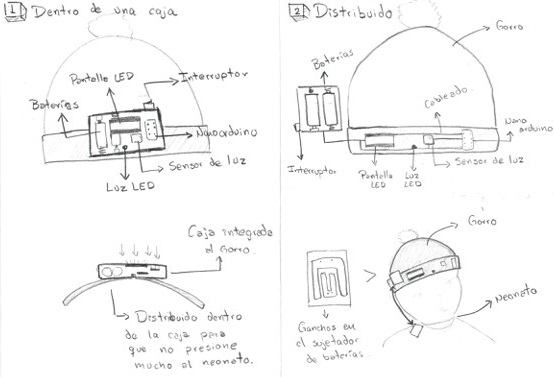 1 Dentro de una caja
Pantalla LED
Interruptor
Baterías
Nanoarduino
Sensor de luz
Luz LED
Caja integrada
al Gorro.
Distribuido dentro
de la caja para
que no presione
mucho al neonato.
2 Distribuido
Gorro
Baterías
Cableado.
Nano
arduino
Interruptor
Pantalla
LED
Luz
LED
Sensor de luz
Gorro
Neonato
Ganchos en
el sujetador
de baterías.